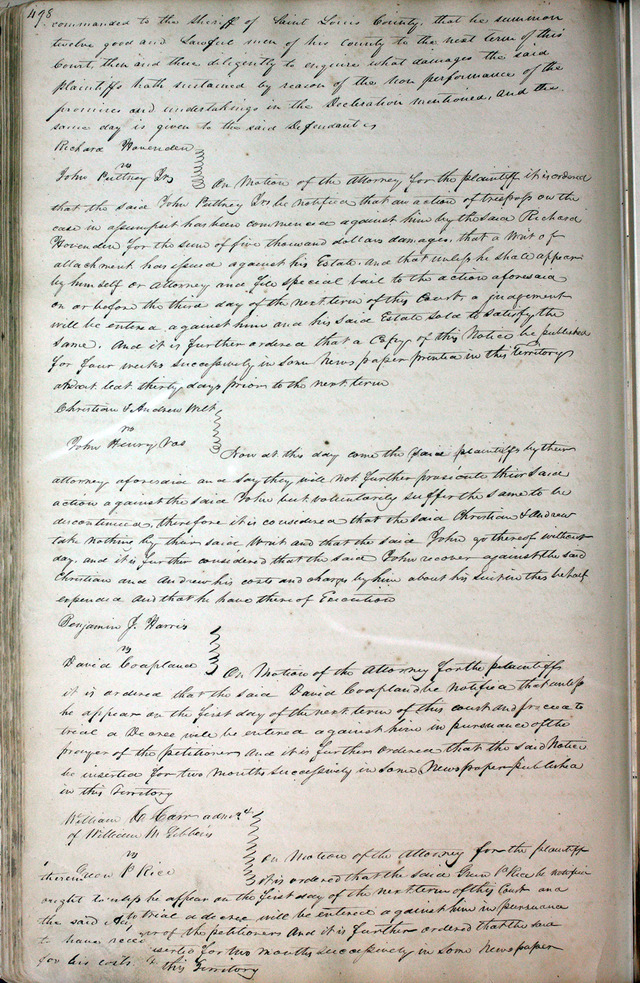 498
commanded to the Sheriff of Saint Louis County, that he summon
twelve good and Lawful men of his County to the next term of this
Court, then and there diligently to enquire what damages the said
plaintiffs hath sustained by reason of the Non performance of the
promises and undertakings in the Declaration mentioned, And the
same day is given to the said Defendants
Richard Hovenden
vs
John Puttney Jrs
On Motion of the Attorney for the plaintiff it is ordered
that the said John Puttney Jrs be notified that an action of trespass on the
case in assumpsit has been commenced against him by the said Richard
Hovenden for the sum of five thousand dollars damages, that a Writ of
attachment has issued against his Estate. And that unless he shall appear
by himself or Attorney and file special bail to the action aforesaid
on or before the third day of the next term of this Court a judgement
will be entered against him and his said Estate sold to satisfy the
same. And it is further ordered that a Copy of this Notice be published
for four weeks successively in some News paper printed in this Territory
at least thirty days prior to the next term
Christian & Andrew Wilt
vs
John Henry Vos
Now at this day come the said plaintiffs by their
attorney aforesaid and say they will not further prosecute their said
action against the said John but voluntarily suffer the same to be
discontinued, therefore it is considered that the said Christian & Andrew
take nothing by their said writ and that the said John go thereof without
day, and it is further considered that the said John recover against the said
Christian and Andrew his costs and charges by him about his suit in this behalf
expended and that he have thereof Execution
Benjamin J. Harris
vs
David Coapland
On Motion of the Attorney for the plaintiffs
it is ordered that the said David Coapland be notified that unless
he appear on the first day of the next term of this court and proceed to
trial a Decree will be entered against him in pursuance of the
prayer of the petitioners And it is further ordered that the said Notice
be inserted for two months successively in some Newspaper published
in this Territory
William C. Carr adm
of William M Gibbins
vs
P Rice
On Motion of the Attorney for the plaintiff
it is ordered that the said P Rice be notified
he appear on the first day of the next term of this Court and
trial a decree will be entered against him in pursuance
of the petitioners And it is further ordered that the said
for two months successively in some Newspaper
this Territory
ought to
the said
to have
for his costs